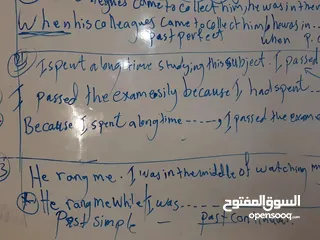 his colleagues came to collect him, he was in the
When his colleagues came to collect him, he was in...
past perfect when p.c
2 I spent a long time studying this subject. I passed
I passed the exam easily because I had spent...
Because I spent a long time ......, I passed the exam e
3 He rang me. I was in the middle of watching my
He rang me while I was ..........
Past simple — past continuous
السوق المفتوح
opensooq.com